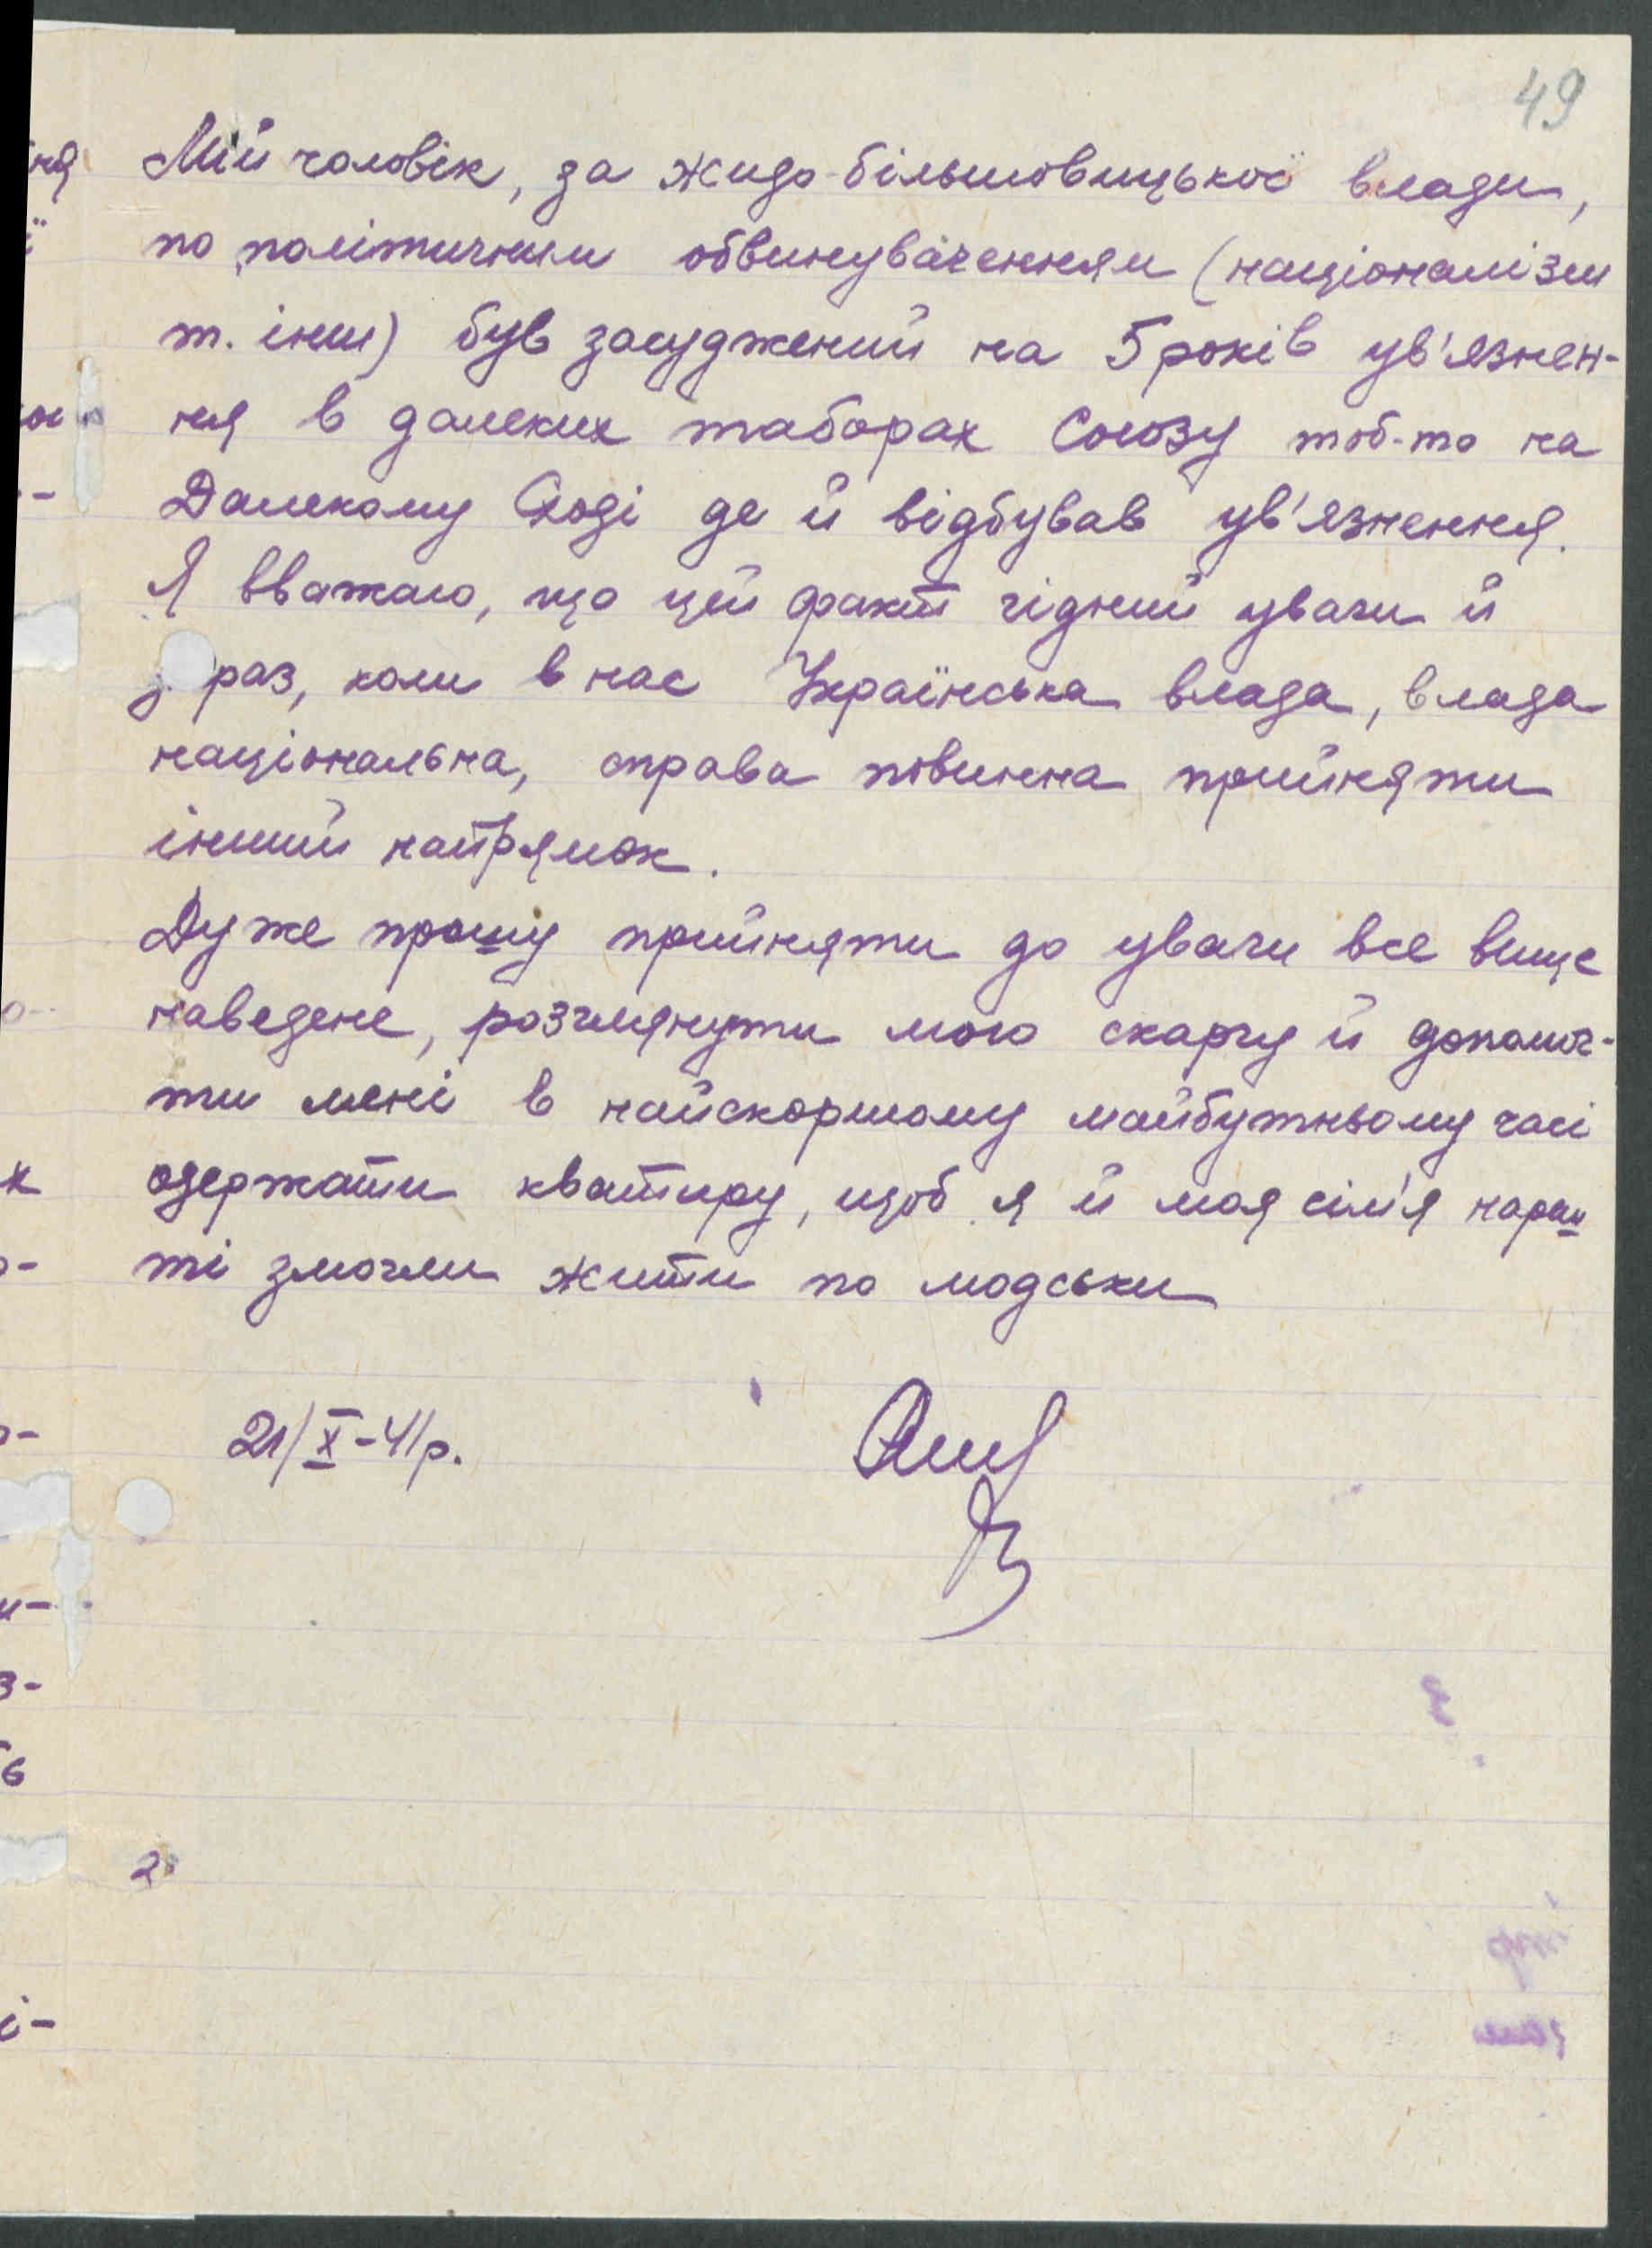 49
Мій чоловік, за жидо-більшовицької влади,
по політичним обвинуваченням (націоналізм
т. інш) був засуджений на 5 років ув'язнен-
ня в далеких таборах Союзу тоб-то на
Далекому Сході де й відбував ув'язнення.
Я вважаю, що цей факт гідний уваги й
раз, коли в нас Українська влада, влада
національна, справа повинна прийняти
інший напрямок.
Дуже прошу прийняти до уваги все вище
наведене, розглянути мою скаргу й допомог-
ти мені в найскоршому майбутньому часі
одержати кватиру, щоб я й моя сім'я нареш
ті змогли жити по людськи
21/X-41р.